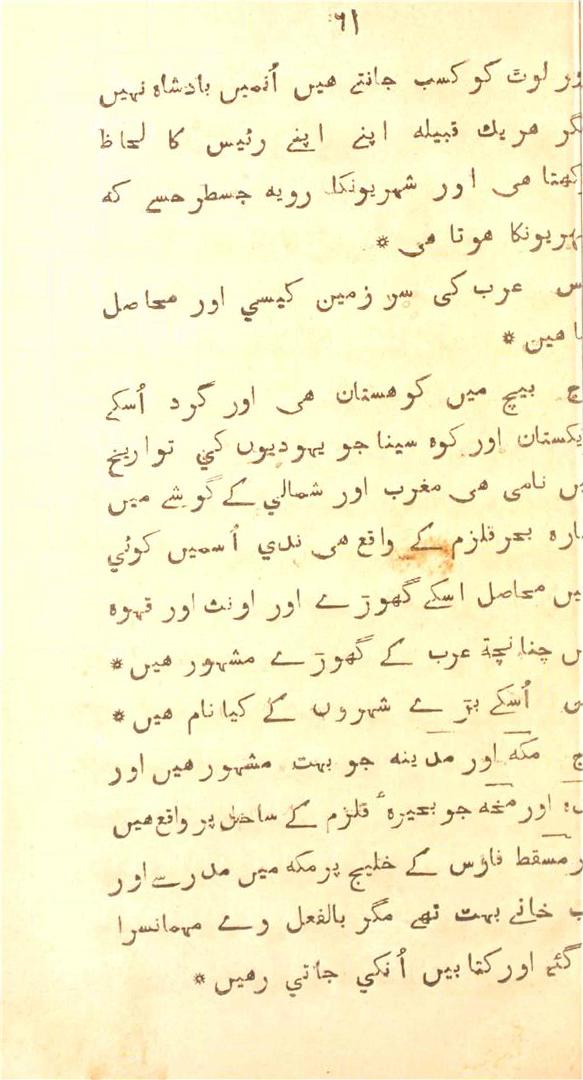 ۶۱
ور لوٹ کو کسب جانتے هیں اُنمیں بادشاہ نہیں
گر هر یك قبیله اپنے اپنے رئیس کا لحاظ
کهتا هی اور شهریونکا رویه جسطرحسے که
هریونکا هوتا هی *
س عرب کی سر زمین کیسي اور محاصل
ا هین *
ج بیچ میں کوهستان هی اور گرد اُسکے
یگستان اور کوہ سینا جو یہودیوں کي تواریخ
یں نامی هی مغرب اور شمالي کے گوشے میں
نارہ بحر قلزم کے واقع هی ندي اُسمیں کوئي
یں محاصل اسکے گھوڑے اور اونٹ اور قہوہ
ں چنانچة عرب کے گھوڑے مشہور هیں *
س اُسکے بڑے شہروں کے کیا نام هیں *
ج مکه اور مدینه جو بہت مشہور هیں اور
دہ اور مخه جو بحیرہٴ قلزم کے ساحل پر واقع هیں
ر مسقط فارس کے خلیج پر مکه میں مدرسے اور
ب خانے بہت تھے مگر بالفعل وے مہمانسرا
گئے اور کتابیں اُنکي جاتي رهیں *